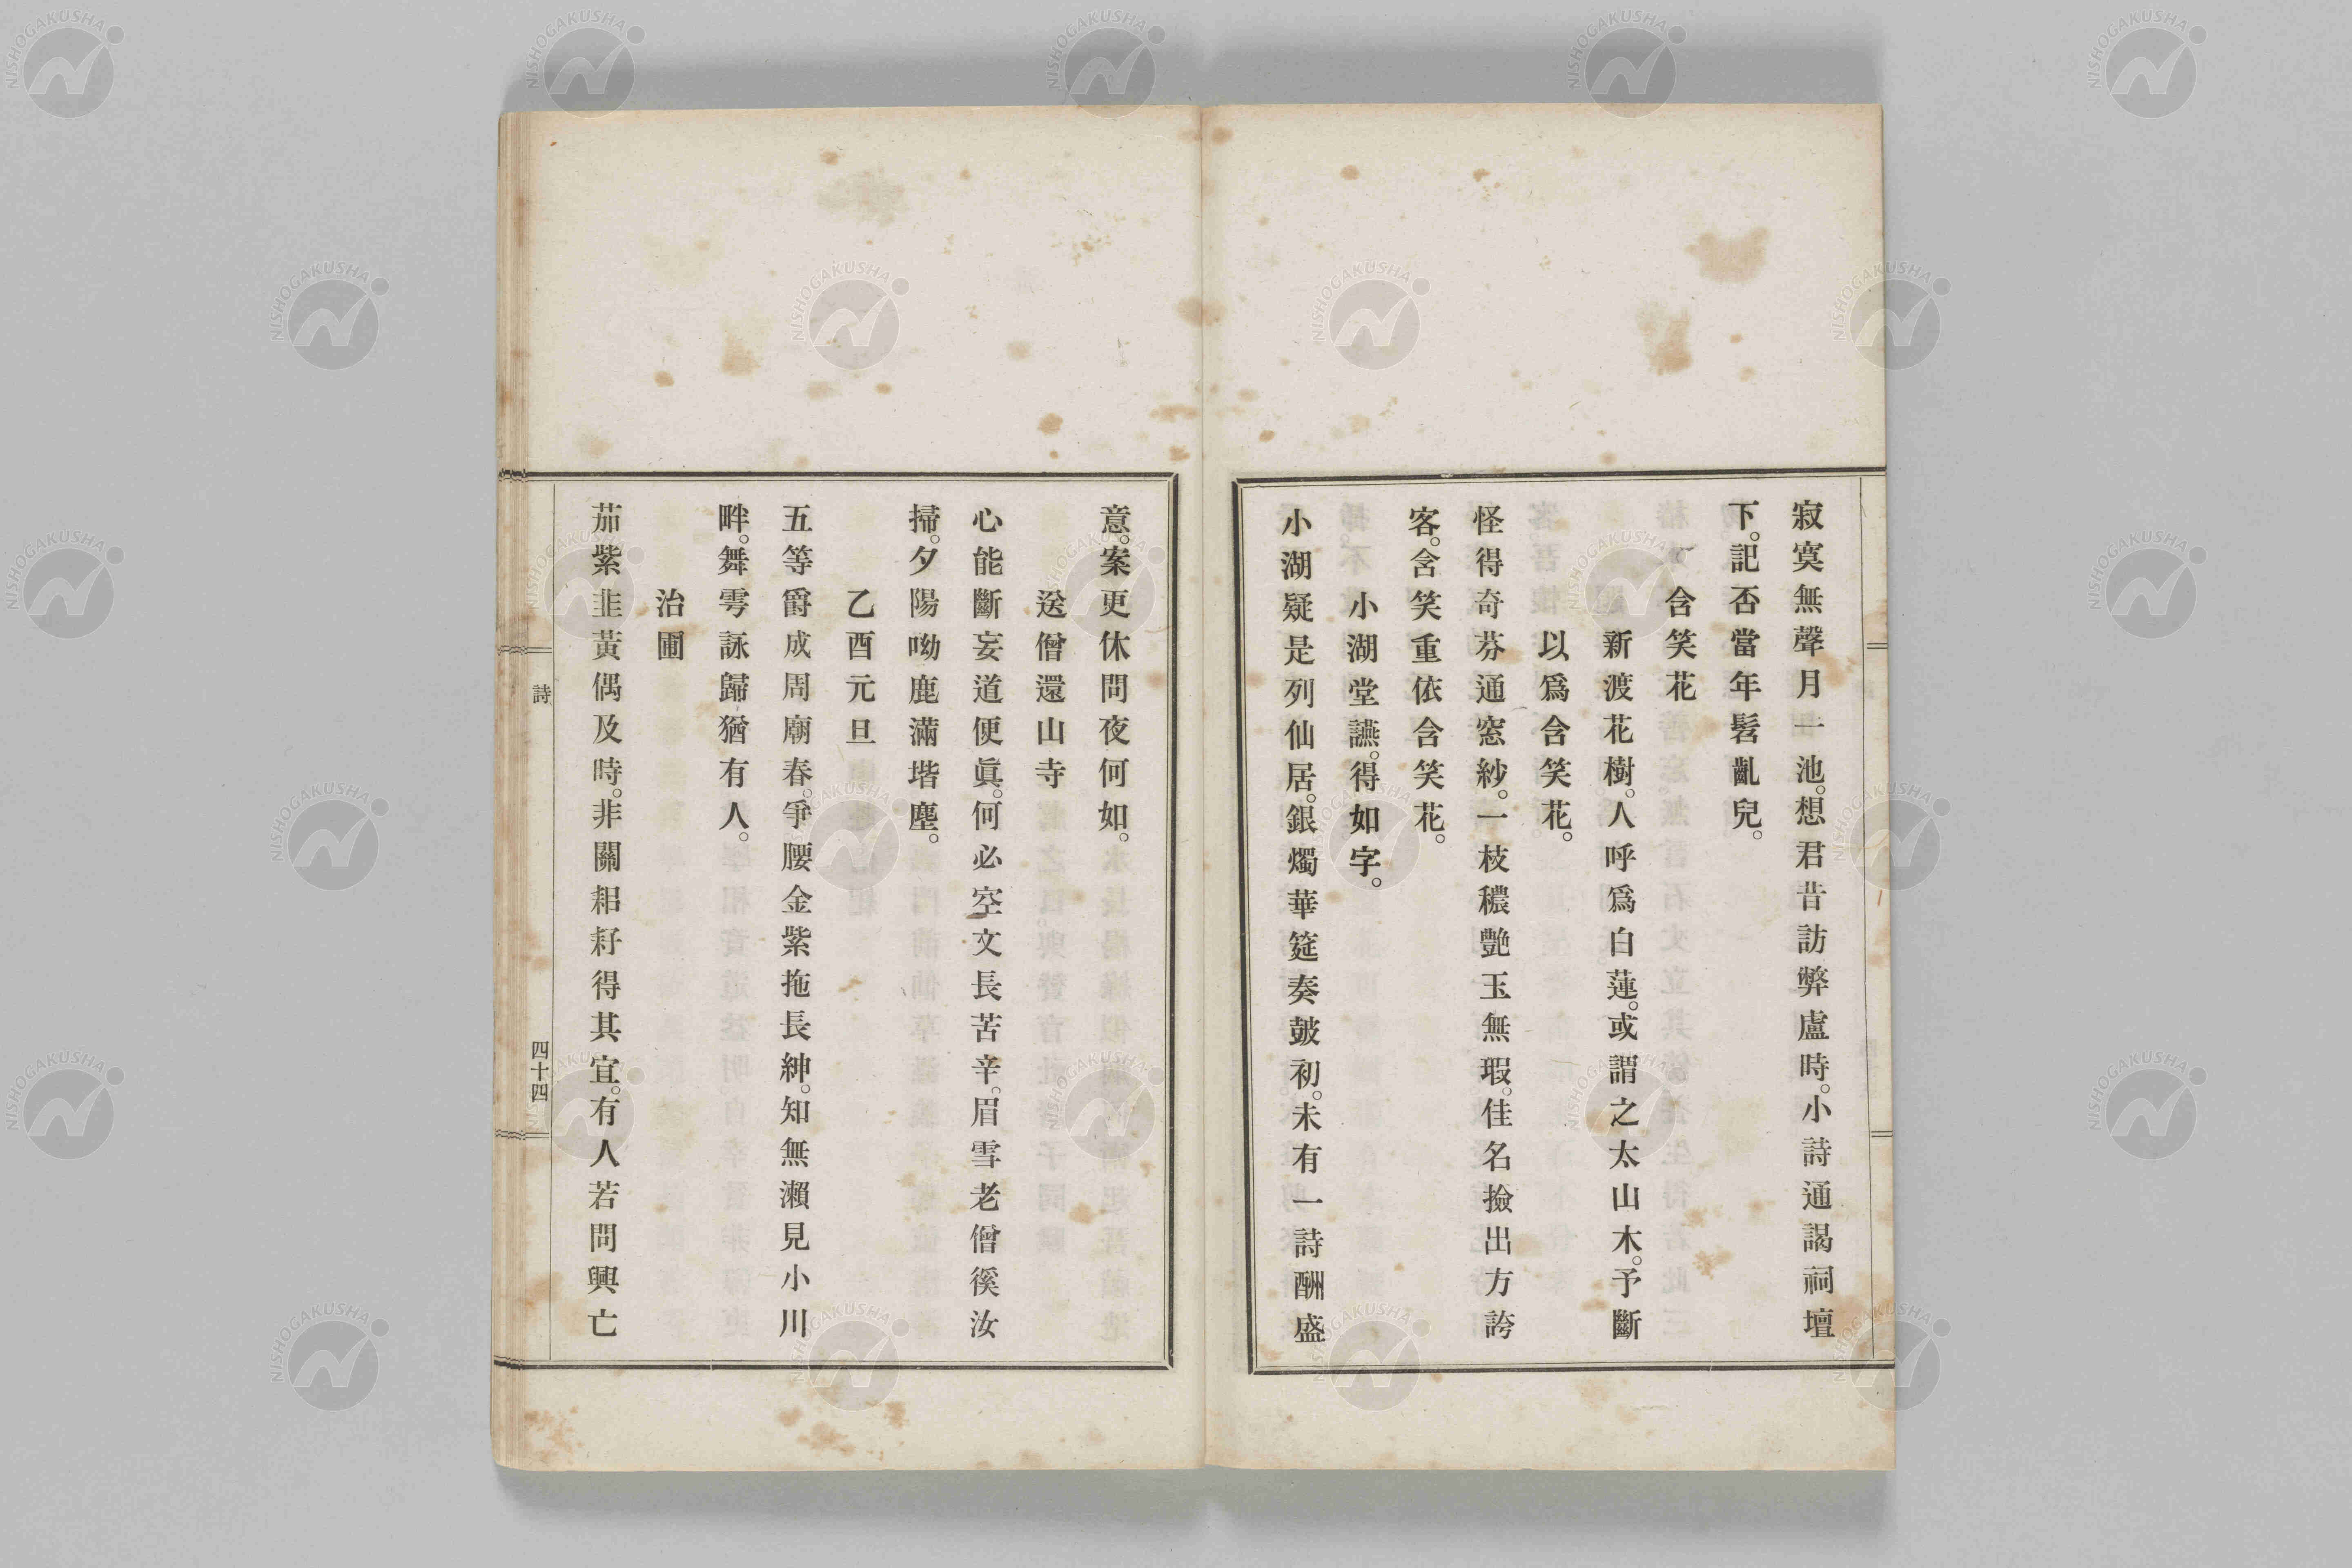 寂寞無聲月一池。想君昔訪弊盧時。小詩通謁祠壇
下。記否當年髫齓兒。
含笑花
新渡花樹。人呼爲白蓮。或謂之太山木。予斷
以爲含笑花。
怪得奇芬通窓紗。一枝穠艶玉無瑕。佳名撿出方誇
客。含笑重依含笑花。
小湖堂讌。得如字。
小湖疑是列仙居。銀燭華筵奏皷初。未有一詩酬盛
意。案更休問夜何如。
送僧還山寺
心能斷妄道便眞。何必空文長苦辛。眉雪老僧徯汝
掃。夕陽呦鹿滿堦塵。
乙酉元旦
五等爵成周廟春。爭腰金紫拖長紳。知無瀨見小川
畔。舞雩詠歸猶有人。
治圃
茄紫韭黃偶及時。非關耜耔得其宜。有人若問興亡
詩
四十四
NISHOGAKUSHA